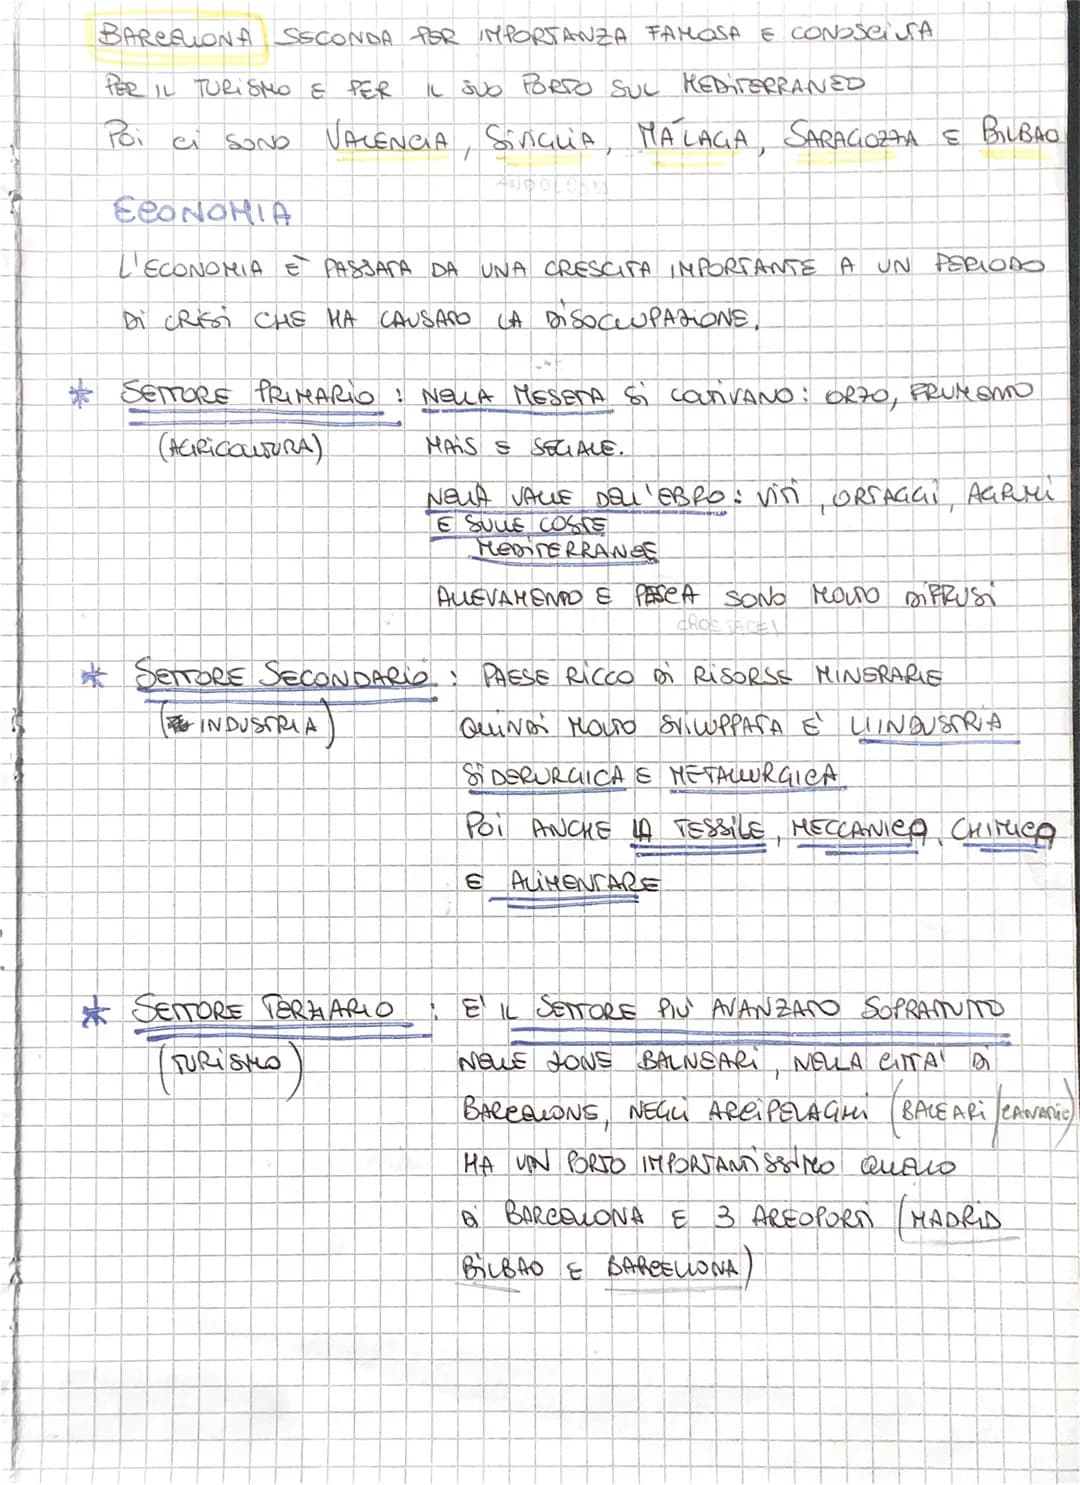 BARCELLONA SECONDA PER IMPORTANZA FAMOSA E CONOSCIUTA
PER IL TURISMO E PER IL SUO PORTO SUL MEDITERRANEO
POI CI SONO VALENCIA, SIVIGLIA, MÁLAGA, SARAGOZZA E BILBAO
ECONOMIA
L'ECONOMIA È PASSATA DA UNA CRESCITA IMPORTANTE A UN PERIODO
DI CRISI CHE HA CAUSATO LA DISOCCUPAZIONE.
* SETTORE PRIMARIO : NELLA MESETA SI COLTIVANO: ORZO, FRUMENTO
(AGRICOLTURA) MAIS E SEGALE.
NELLA VALLE DELL'EBRO: VITI, ORTAGGI, AGRUMI
E SULLE COSTE
MEDITERRANEE
ALLEVAMENTO E PESCA SONO MOLTO DIFFUSI
CROSTACEI
* SETTORE SECONDARIO : PAESE RICCO DI RISORSE MINERARIE
(INDUSTRIA) QUINDI MOLTO SVILUPPATA E' L'INDUSTRIA
SIDERURGICA E METALLURGICA
POI ANCHE LA TESSILE, MECCANICA, CHIMICA
E ALIMENTARE
* SETTORE TERZIARIO : E' IL SETTORE PIU' AVANZATO SOPRATTUTTO
(TURISMO) NELLE ZONE BALNEARI, NELLA CITTA' DI
BARCELLONE, NEGLI ARCIPELAGHI (BALEARI/CANARIE)
HA UN PORTO IMPORTANTISSIMO QUELLO
DI BARCELLONA E 3 AREOPORTI (MADRID
BILBAO E BARCELLONA)